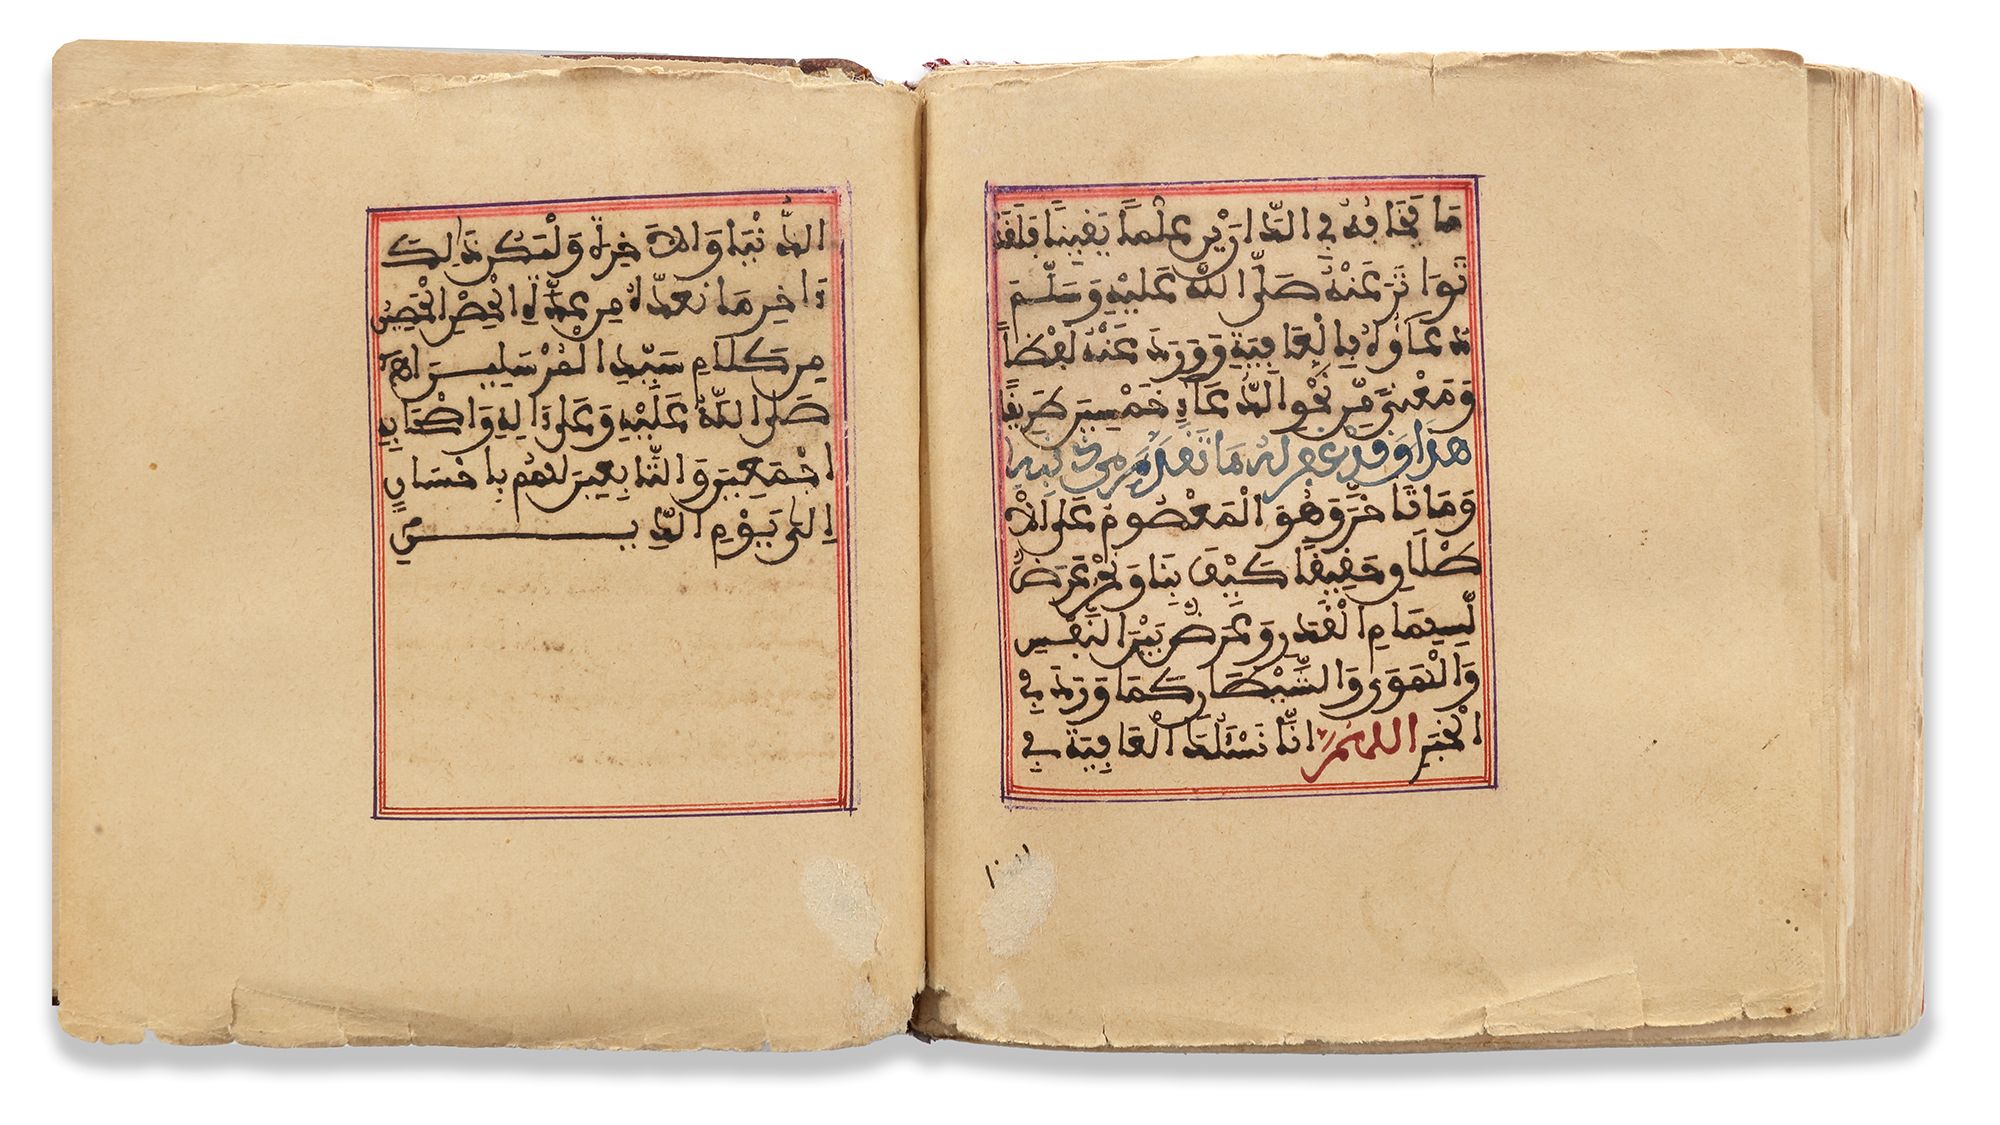 مَا يَخَافُهُ فِي الدَّارَيْنِ عِلْمًا يَقِينًا فَلَقَدْ
تَوَاتَرَ عَنْهُ صَلَّى اللَّهُ عَلَيْهِ وَسَلَّمَ
دُعَاؤُهُ بِالْعَافِيَةِ وَوَرَدَ عَنْهُ لَفْظًا
وَمَعْنىً مِّن نَّحْوِ الدُّعَاءِ خَمْسِينَ طَرِيقًا
هذا وقد غفر له ما تقدم من ذنبه
وَمَا تَأَخَّرَ وَهُوَ الْمَعْصُومُ عَلَى الاْ
طْلَاقِ حَقِيقًا كَيْفَ بِنَا وَنَحْنُ غَرَضٌ
لِّسِهَامِ الْقَدَرِ وَغَرَضٌ بَيْنَ النَّفْسِ
وَالْهَوَى وَالشَّيْطَانِ كَمَا وَرَدَ فِي
الْخَبَرِ اللهم انَّا نَسْئَلُكَ الْعَافِيَةَ فِي
الدُّنْيَا وَالاَخِرَةِ وَلْيَكُن ذَالِكَ
ءَاخِرَ مَا نَعُدُّهُ مِن عُدَّةِ الْحِصْنِ الْحَصِينِ
مِن كَلَامِ سَيِّدِ الْمُرْسَلِينَ
صَلَّى اللَّهُ عَلَيْهِ وَعَلَى ءَالِهِ وَاصْحَابِهِ
اجْمَعِينَ وَالتَّابِعِينَ لَهُم بِاحْسَانٍ
الَى يَوْمِ الدِّيــــنِ